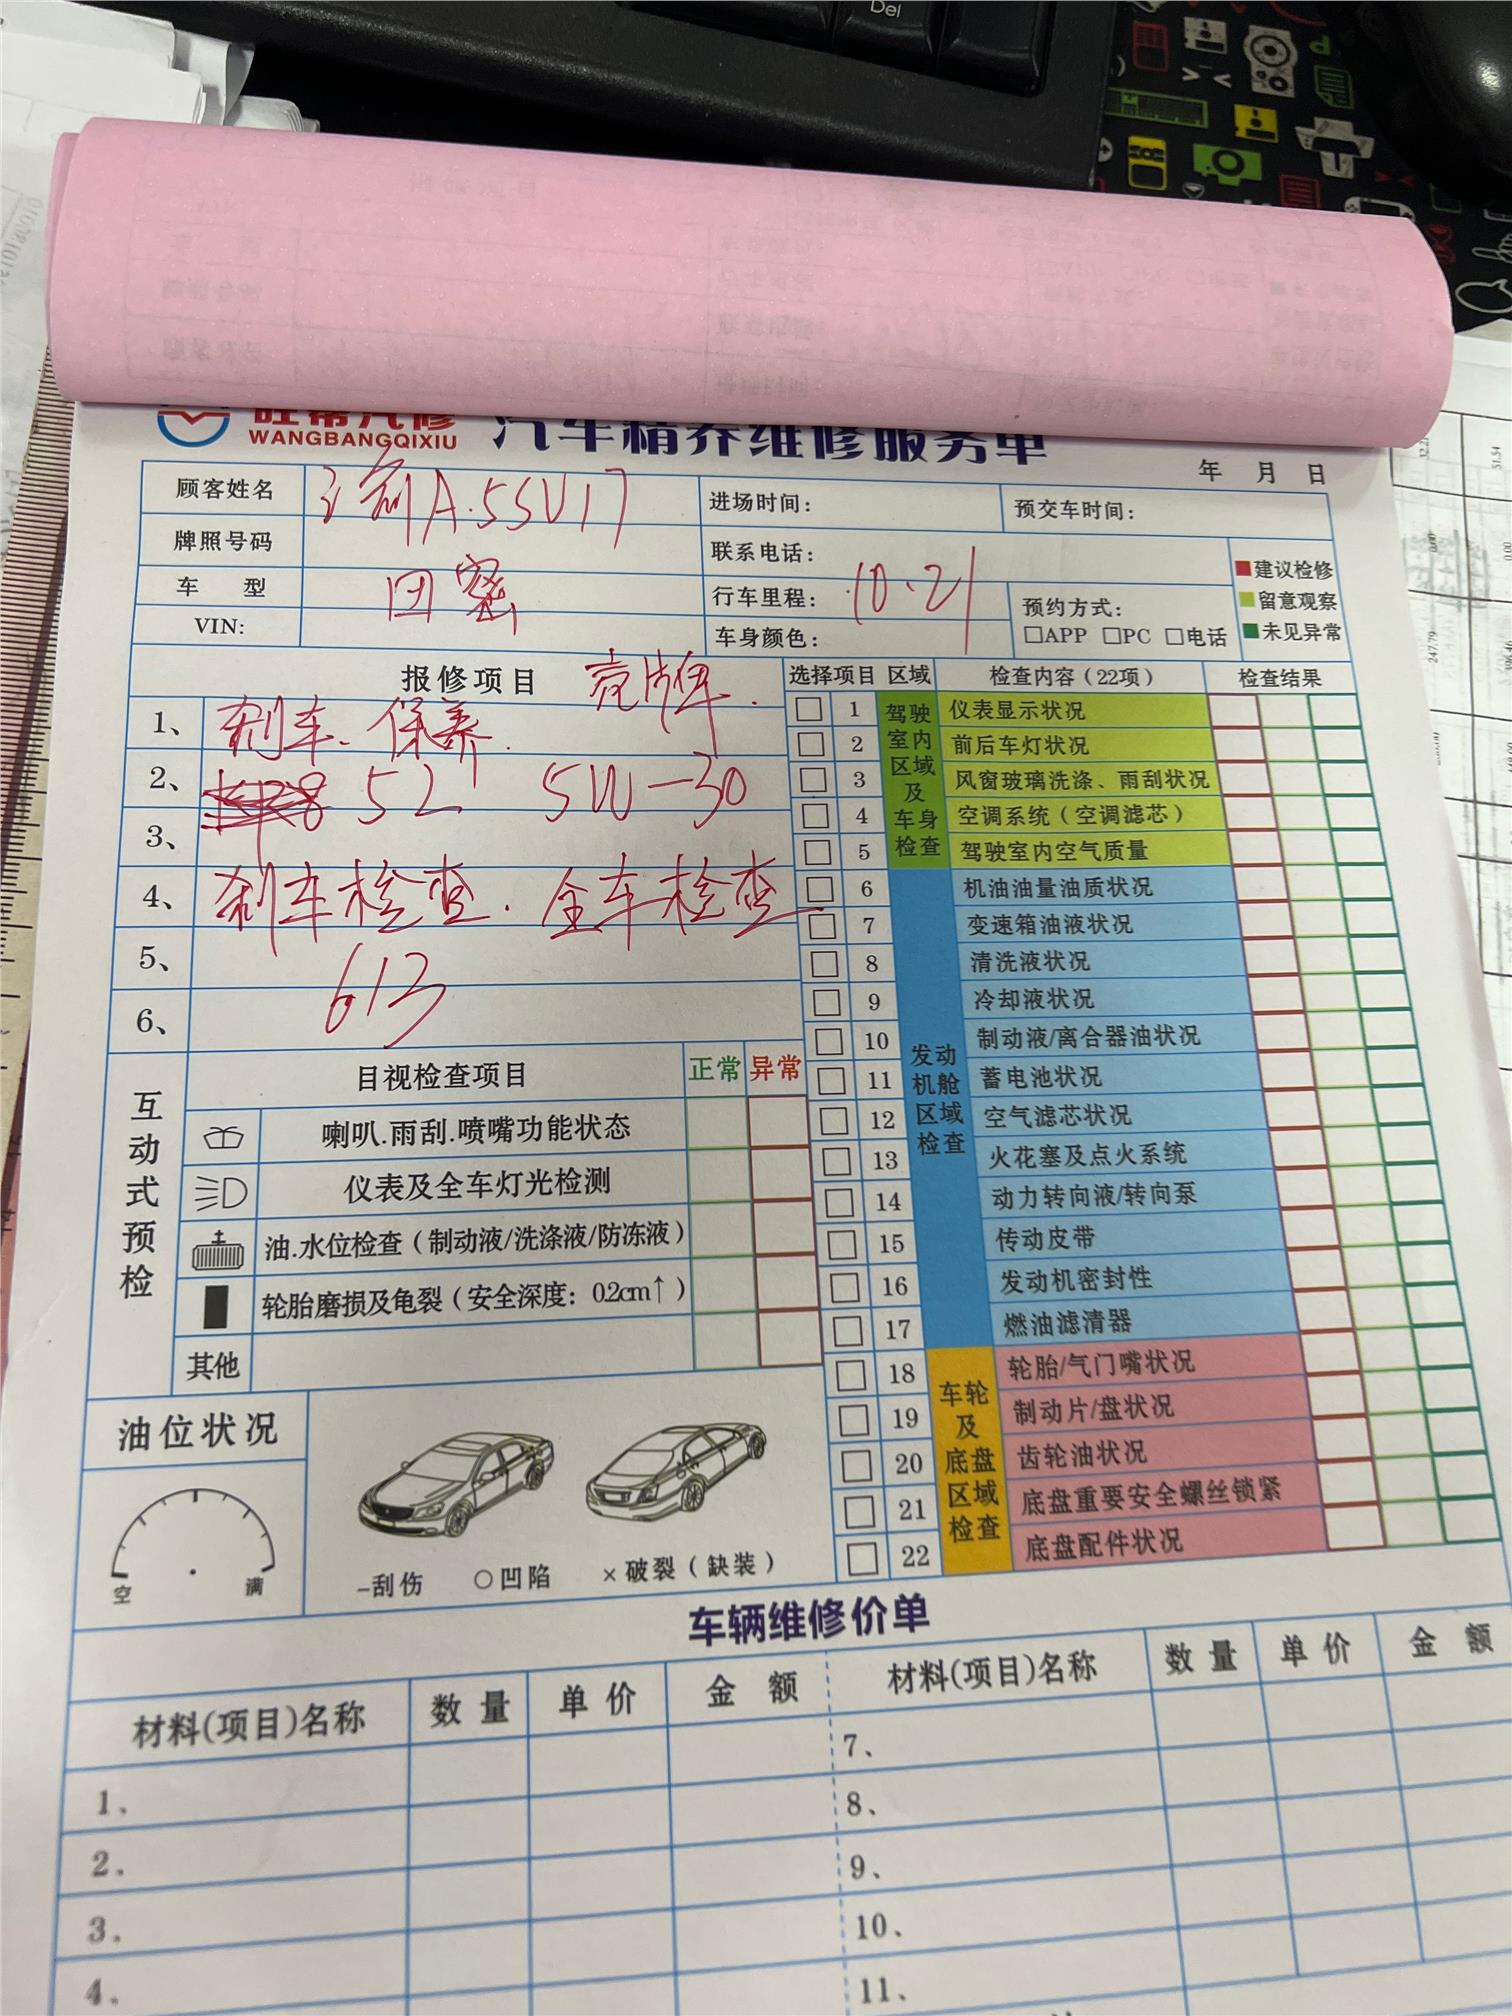 Del
旺帮汽修
WANGBANGQIXIU
汽车精养维修服务单
年 月 日
顾客姓名
A.55V17
进场时间:
预交车时间:
牌照号码
联系电话:
车 型
行车里程: 10.21
预约方式:
□APP □PC □电话
VIN:
车身颜色:
建议检修
留意观察
未见异常
报修项目 壳牌.
1、刹车、保养.
2、 5L 5W-30
3、
4、刹车检查.全车检查
5、
613
6、
选择项目 区域 检查内容(22项) 检查结果
驾驶室内区域及车身检查
1 仪表显示状况
2 前后车灯状况
3 风窗玻璃洗涤、雨刮状况
4 空调系统(空调滤芯)
5 驾驶室内空气质量
发动机舱区域检查
6 机油油量油质状况
7 变速箱油液状况
8 清洗液状况
9 冷却液状况
10 制动液/离合器油状况
11 蓄电池状况
12 空气滤芯状况
13 火花塞及点火系统
14 动力转向液/转向泵
15 传动皮带
16 发动机密封性
17 燃油滤清器
车轮及底盘区域检查
18 轮胎/气门嘴状况
19 制动片/盘状况
20 齿轮油状况
21 底盘重要安全螺丝锁紧
22 底盘配件状况
互动式预检
目视检查项目 正常 异常
喇叭.雨刮.喷嘴功能状态
仪表及全车灯光检测
油.水位检查(制动液/洗涤液/防冻液)
轮胎磨损及龟裂(安全深度: 0.2cm↑)
其他
油位状况
空 满
-刮伤 ○凹陷 ×破裂(缺装)
车辆维修价单
材料(项目)名称 数量 单价 金额 材料(项目)名称 数量 单价 金额
1、 7、
2、 8、
3、 9、
4、 10、
11、